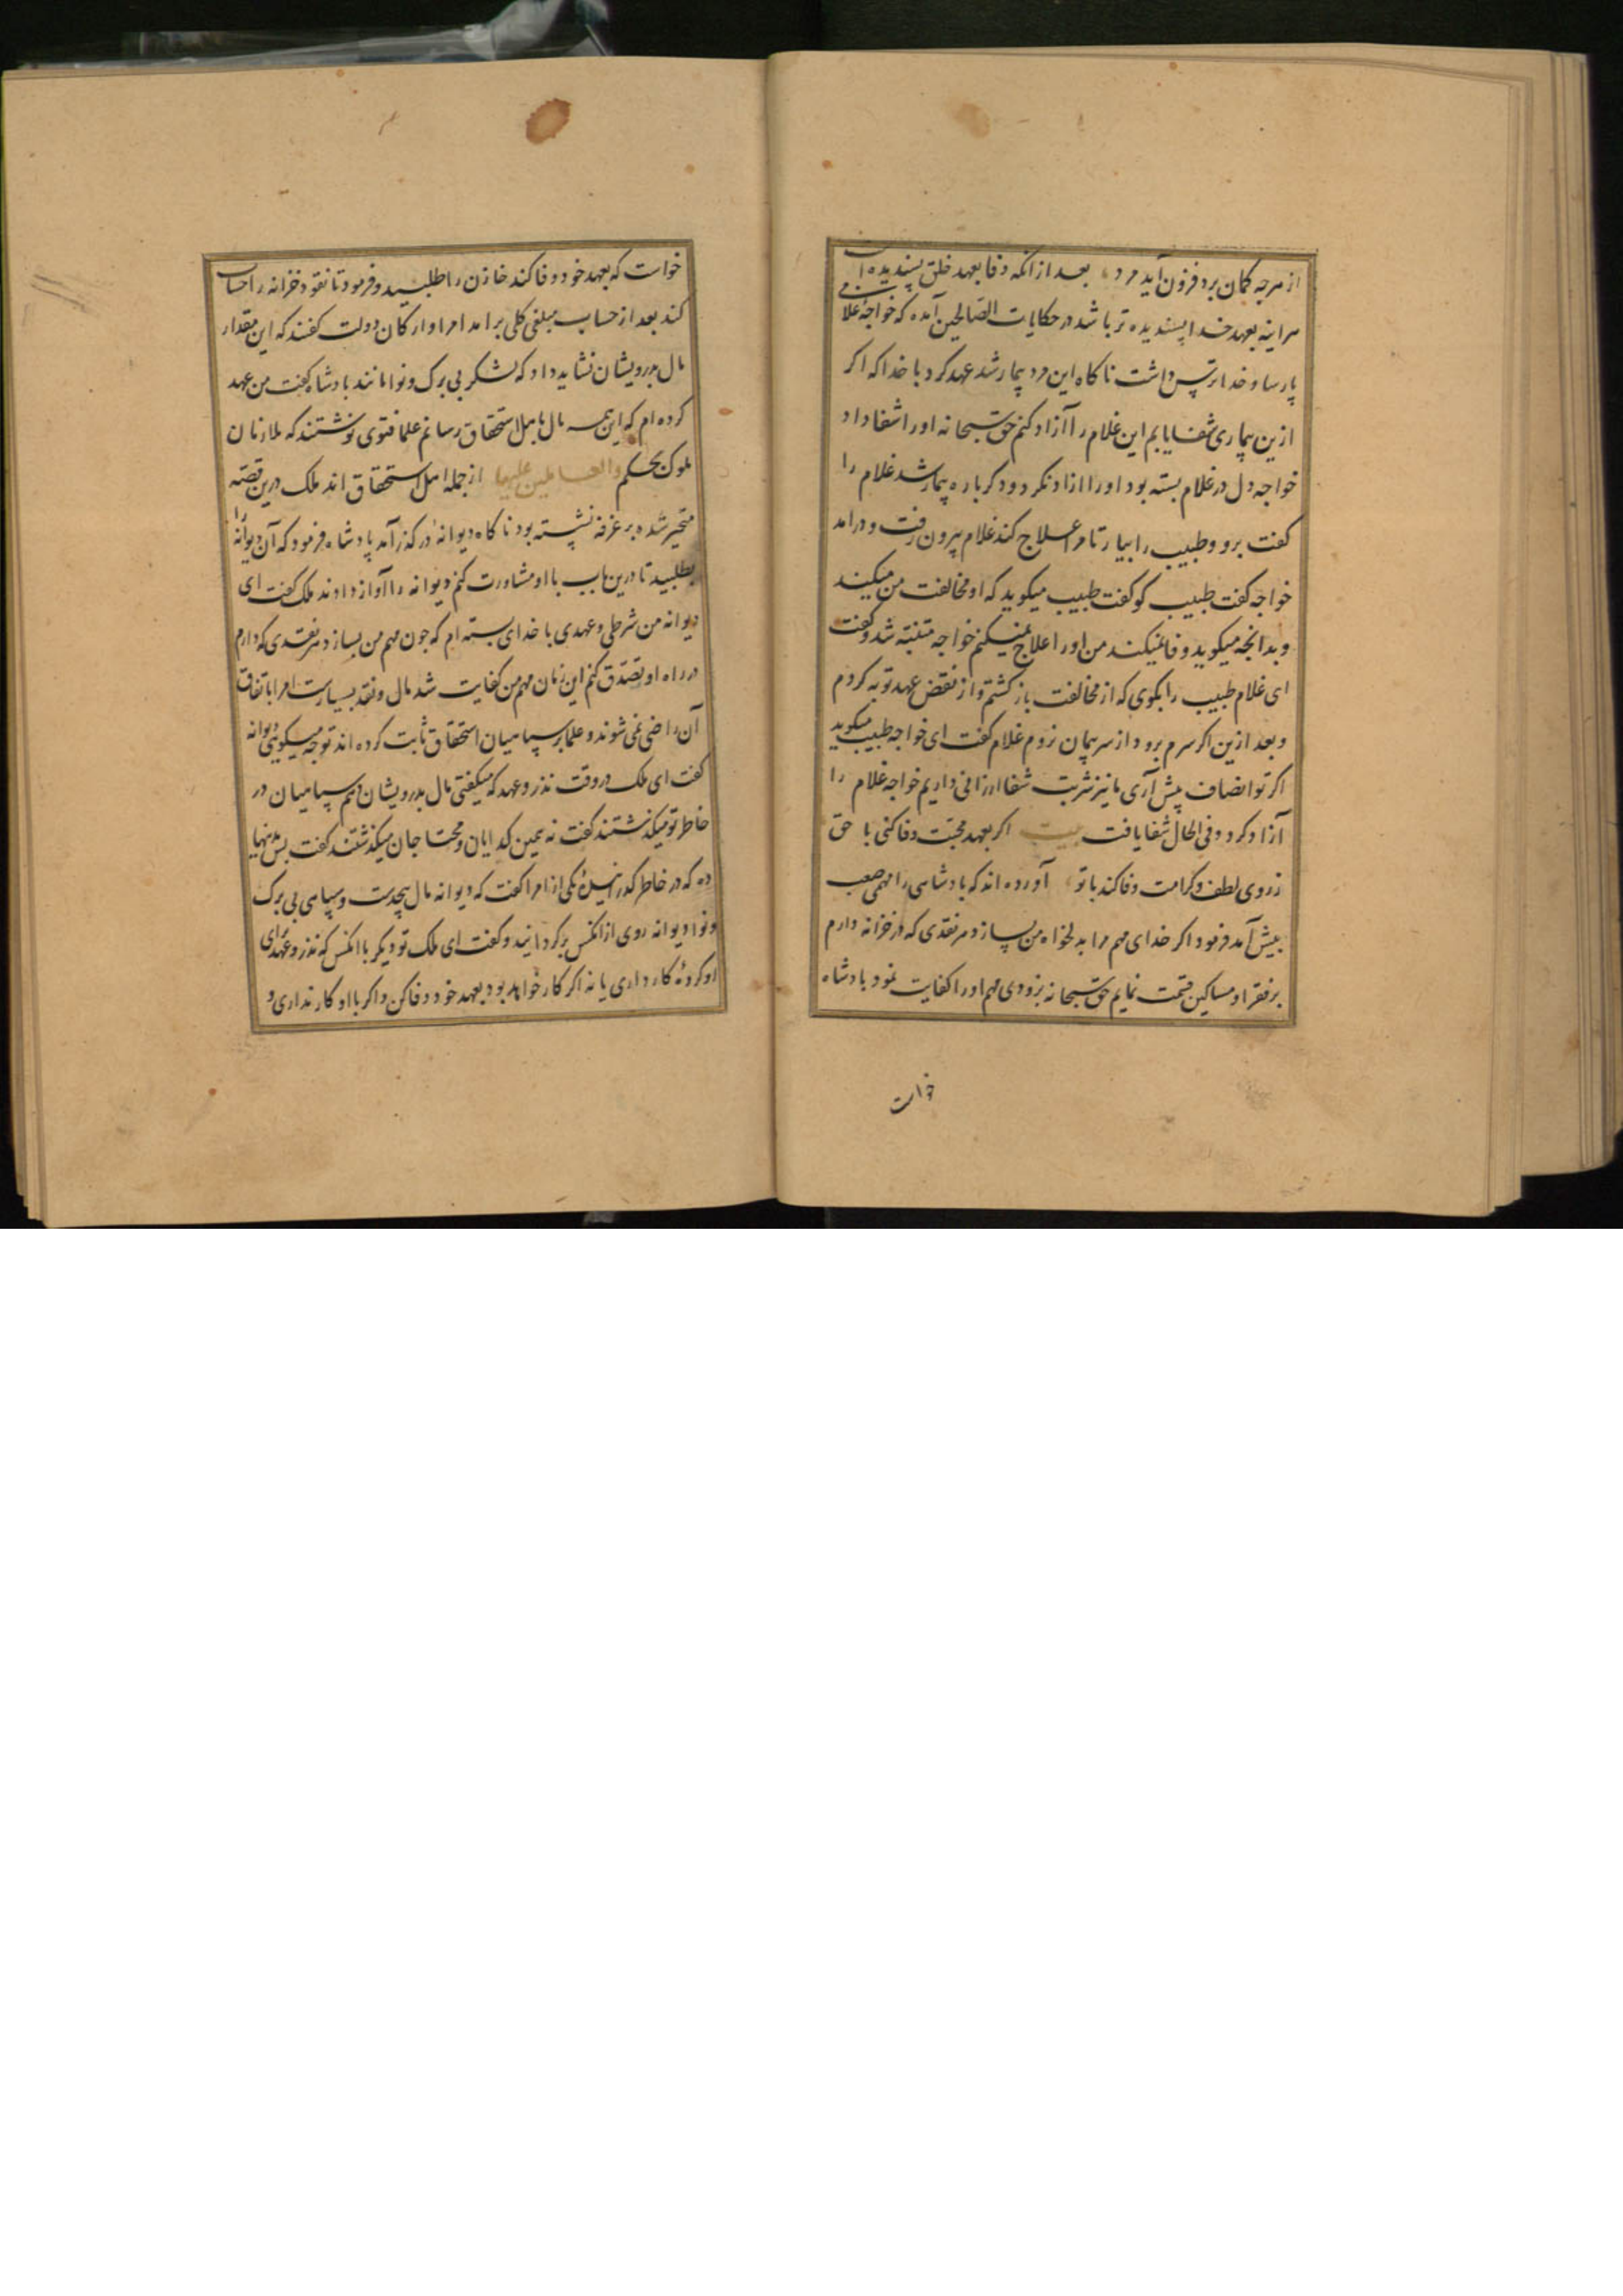 از هرچه کمان برد فزون آید مرد بعد از انکه وفا بعهد خلق پسندیده است
هراینه بعهد خدا پسندیده تر باشد در حکایات الصالحین آمده که خواجهٔ غلامی
پارسا و خدا ترس داشت ناکاه این مرد بیمار شد عهد کرد با خدا که اکر
ازین بیماری شفا یابم این غلام را آزاد کنم حق سبحانه او را شفا داد
خواجه دل در غلام بسته بود او را ازاد نکرد و دکر باره بیمار شد غلام را
کفت برو و طبیب را بیار تا مرا علاج کند غلام بیرون رفت و درامد
خواجه کفت طبیب کو کفت طبیب میکوید که او مخالفت من میکند
و بدانچه میکوید وفا نمیکند من او را علاج نمیکنم خواجه متنبه شد و کفت
ای غلام طبیب را بکوی که از مخالفت باز کشتم و از نقض عهد توبه کردم
و بعد ازین اکر سرم برود از سر پیمان نروم غلام کفت ای خواجه طبیب میکوید
اکر تو انصاف پیش آری ما نیز شربت شفا ارزانی داریم خواجه غلام را
آزاد کرد و فی الحال شفا یافت بیت اکر بعهد محبت وفا کنی با حق
ز روی لطف و کرامت وفا کند با تو آورده اند که پادشاهی را مهمی صعب
پیش آمد فرمود اکر خدای مهم مرا بدلخواه من بسازد هر نقدی که در خزانه دارم
بر فقرا و مساکین قسمت نمایم حق سبحانه بزودی مهم او را کفایت نمود پادشاه
خواست
خواست که بعهد خود وفا کند خازن را طلبید و فرمود تا نقود خزانه را حساب
کند بعد از حساب مبلغی کلی برامد امرا و ارکان دولت کفتند که این مقدار
مال بدرویشان نشاید داد که لشکر بی برک و نوا مانند پادشاه کفت من عهد
کرده ام که این همه مال باهل استحقاق رسانم علما فتوی نوشتند که ملازمان
ملوک بحکم والعاملین علیها از جمله اهل استحقاق اند ملک درین قصه
متحیر شده بر غرفه نشسته بود ناکاه دیوانهٔ در کذر آمد پادشاه فرمود که آن دیوانه را
بطلبید تا درین باب با او مشاورت کنم دیوانه را آواز دادند ملک کفت ای
دیوانه من شرطی و عهدی با خدای بسته ام که چون مهم من بسازد هر نقدی که دارم
در راه او تصدق کنم این زمان مهم من کفایت شد مال و نقد بسیارست امرا باتفاق
آن راضی نمی شوند و علما بر سپاهیان استحقاق ثابت کرده اند تو چه میکویی دیوانه
کفت ای ملک در وقت نذر و عهد که میکفتی مال بدرویشان دهم سپاهیان در
خاطر تو میکذشتند کفت نه همین کدایان و محتاجان میکذشتند کفت پس بدینها
ده که در خاطر کذرانیدهٔ یکی از امرا کفت که دیوانه مال بیحدست و سپاهی بی برک
و نوا دیوانه روی از انکس برکردانید و کفت ای ملک تو دیکر با انکس که نذر و عهد برای
او کردهٔ کار داری یا نه اکر کار خواهد بود بعهد خود وفا کن و اکر با او کار نداری و